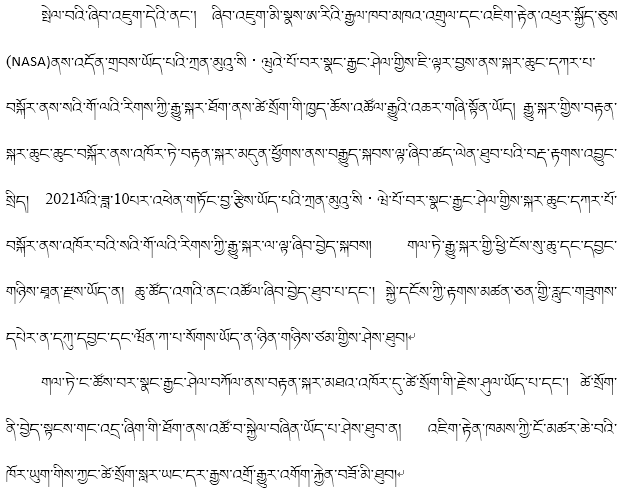 སྤེལ་བའི་ཞིབ་འཇུག་དེའི་ནང་། ཞིབ་འཇུག་མི་སྣས་ཨ་རིའི་རྒྱལ་ཁབ་མཁའ་འགྲུལ་དང་འཇིག་རྟེན་འཕུར་སྐྱོད་ཅུས
(NASA)ནས་འདོན་གྲབས་ཡོད་པའི་ཀྲན་མུའུ་སི་・ཝུའེ་པོ་བར་སྣང་རྒྱང་ཤེལ་གྱིས་ཇི་ལྟར་བྱས་ནས་སྐར་ཆུང་དཀར་པ་
བསྐོར་ནས་སའི་གོ་ལའི་རིགས་ཀྱི་རྒྱུ་སྐར་ཐོག་ནས་ཚེ་སྲོག་གི་ཁྱད་ཆོས་འཚོལ་རྒྱུའི་འཆར་གཞི་སྟོན་ཡོད། རྒྱུ་སྐར་གྱིས་བརྟན་
སྐར་ཆུང་ཆུང་བསྐོར་ནས་འཁོར་ཏེ་བརྟན་སྐར་མདུན་ཕྱོགས་ནས་བརྒྱུད་སྐབས་ལྟ་ཞིབ་ཚད་ལེན་ཐུབ་པའི་བརྡ་རྟགས་འབྱུང་
སྲིད། 2021ལོའི་ཟླ་10པར་འཕེན་གཏོང་བྱ་རྩིས་ཡོད་པའི་ཀྲན་མུའུ་སི་・ཝེ་པོ་བར་སྣང་རྒྱང་ཤེལ་གྱིས་སྐར་ཆུང་དཀར་པོ་
བསྐོར་ནས་འཁོར་བའི་སའི་གོ་ལའི་རིགས་ཀྱི་རྒྱུ་སྐར་ལ་ལྟ་ཞིབ་བྱེད་སྐབས། གལ་ཏེ་རྒྱུ་སྐར་གྱི་ཕྱི་ངོས་སུ་ཆུ་དང་དབྱང་
གཉིས་ཐྭན་རྫས་ཡོད་ན། ཆུ་ཚོད་འགའི་ནང་འཚོལ་ཞིབ་བྱེད་ཐུབ་པ་དང་། སྐྱེ་དངོས་ཀྱི་རྟགས་མཚན་ཅན་གྱི་རླུང་གཟུགས་
དཔེར་ན་དཀུ་དབྱང་དང་ཝོན་ཀ་པ་སོགས་ཡོད་ན་ཉིན་གཉིས་ཙམ་གྱིས་ཤེས་ཐུབ།
གལ་ཏེ་ང་ཚོས་བར་སྣང་རྒྱང་ཤེལ་བཀོལ་ནས་བརྟན་སྐར་མཐའ་འཁོར་དུ་ཚེ་སྲོག་གི་རྗེས་ཤུལ་ཡོད་པ་དང་། ཚེ་སྲོག་
ནི་བྱེད་སྟངས་གང་འདྲ་ཞིག་གི་ཐོག་ནས་འཚོ་བ་སྐྱེལ་བཞིན་ཡོད་པ་ཤེས་ཐུབ་ན། འཇིག་རྟེན་ཁམས་ཀྱི་ངོ་མཚར་ཆེ་བའི་
ཁོར་ཡུག་གིས་ཀྱང་ཚེ་སྲོག་སླར་ཡང་དར་རྒྱས་འགྲོ་རྒྱུར་འགོག་རྐྱེན་བཟོ་མི་ཐུབ།